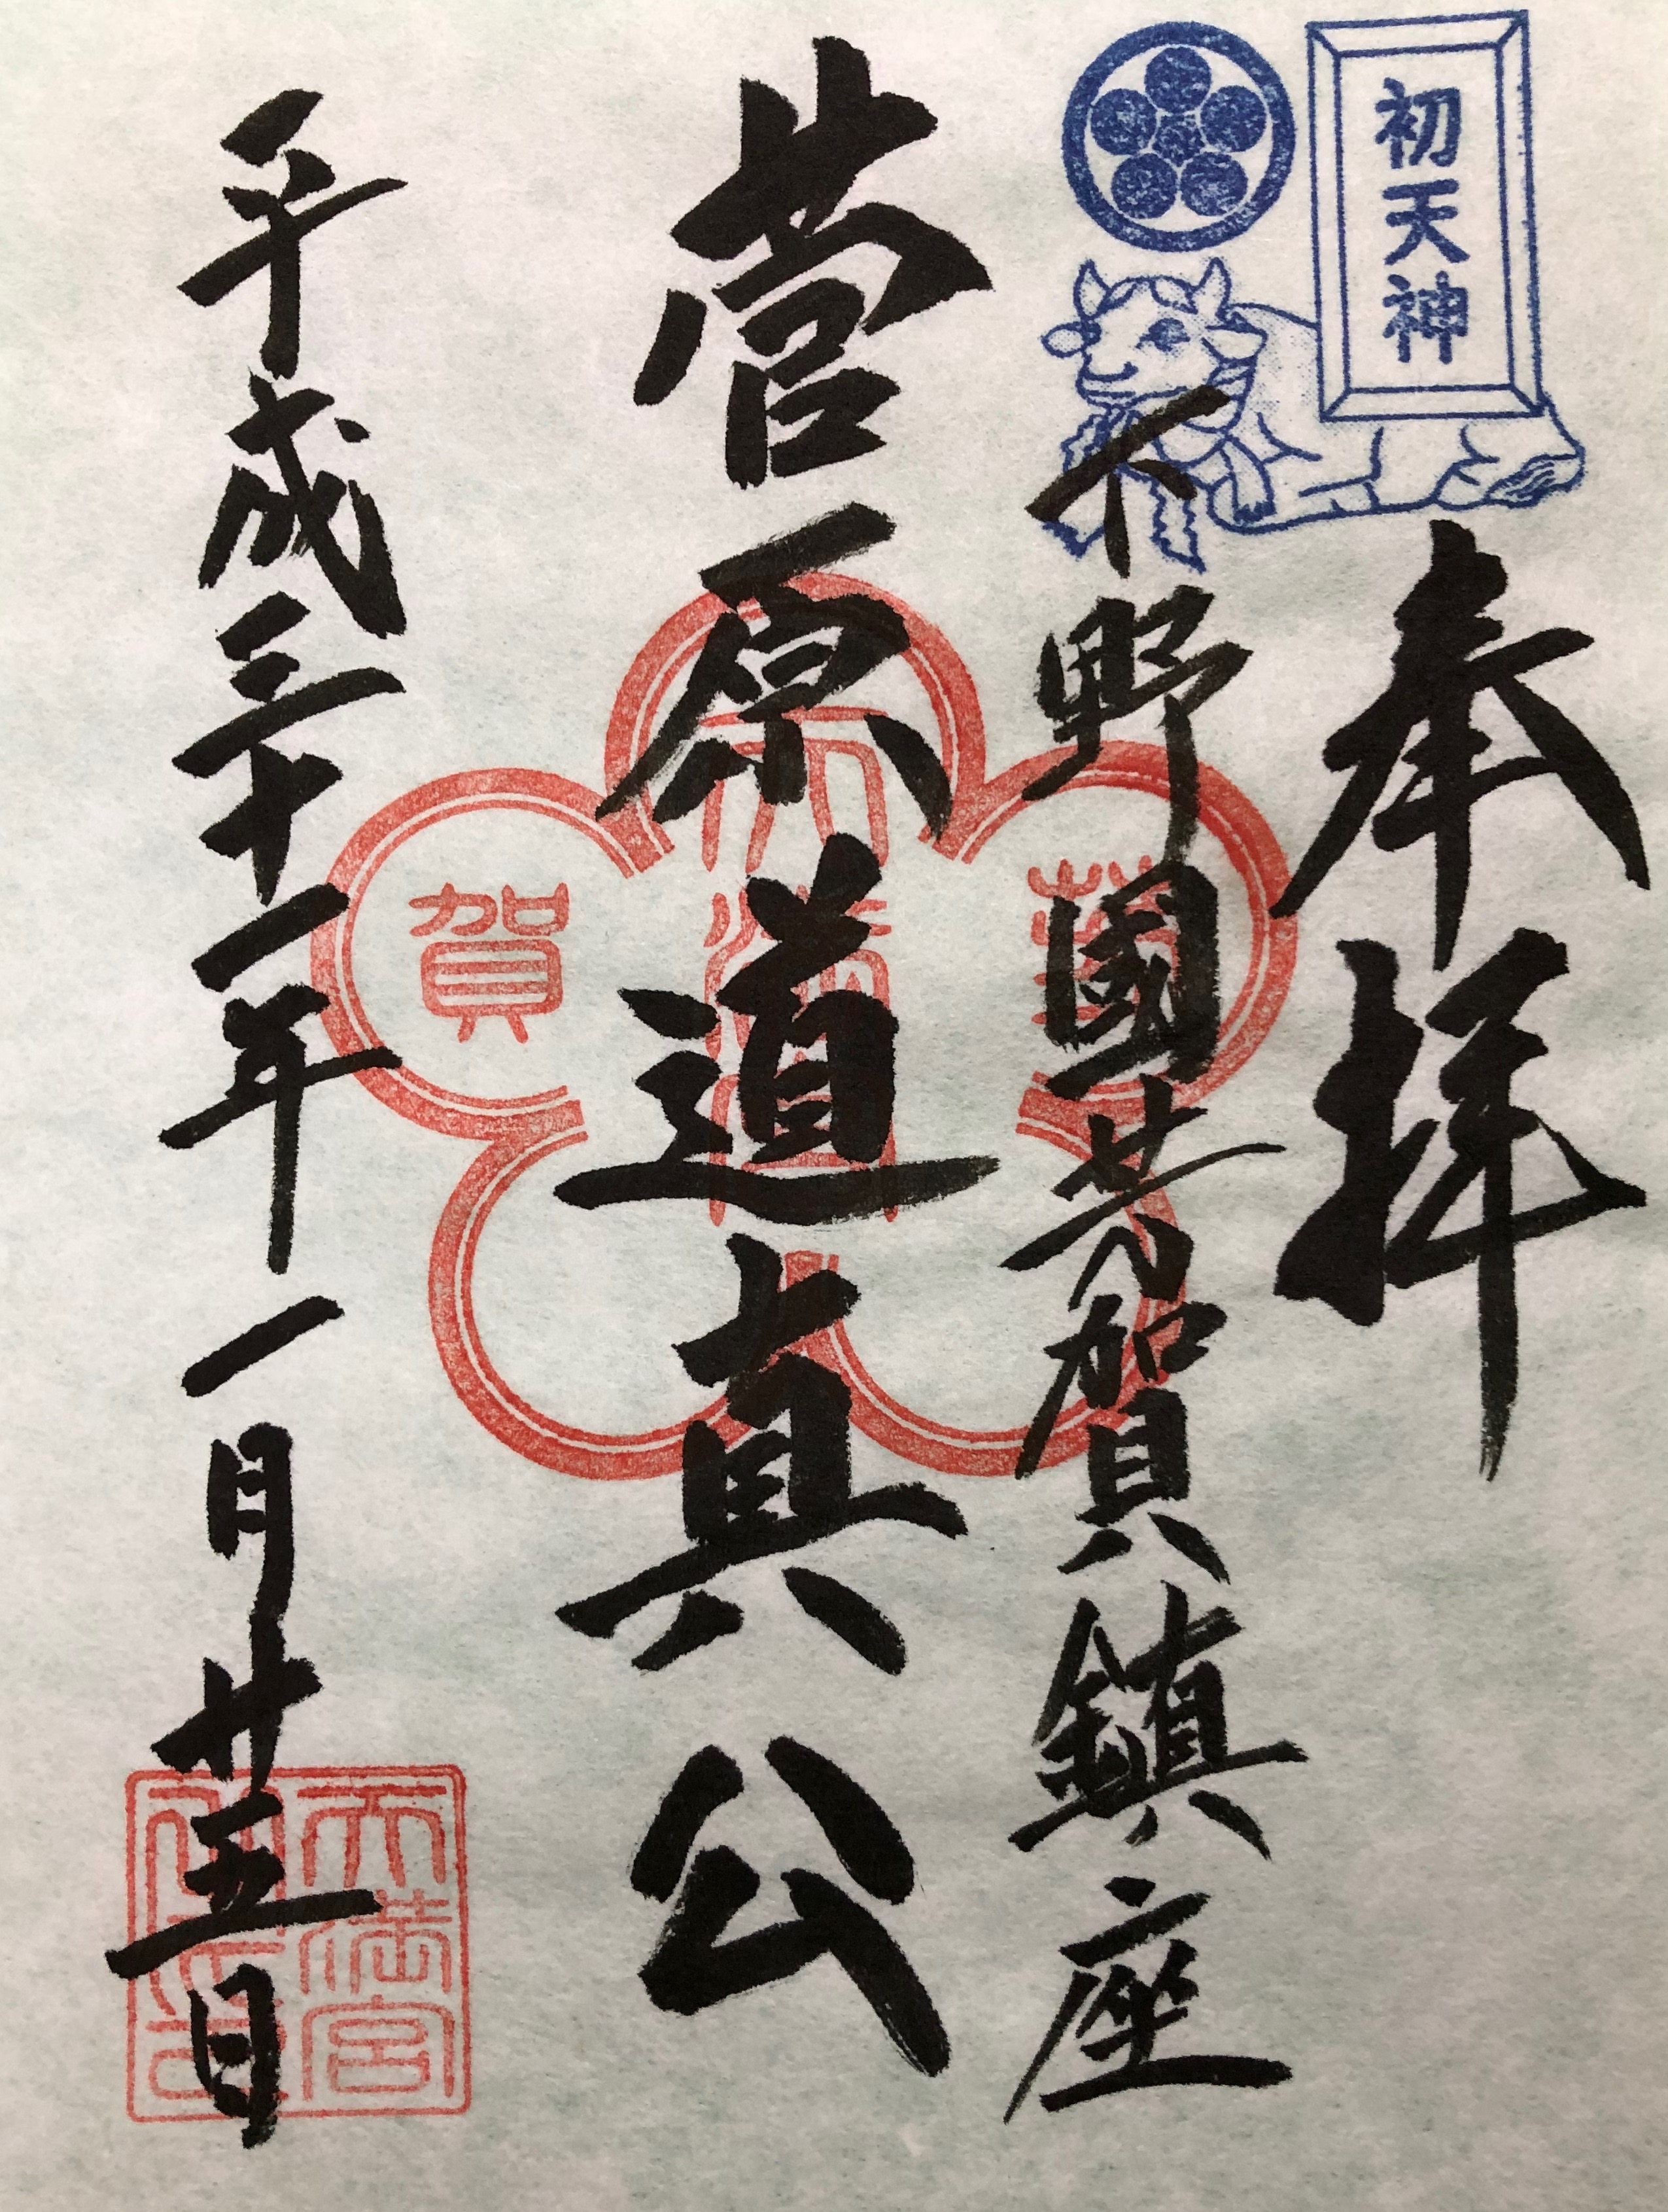 初天神
奉拝
下野國芳賀鎮座
菅原道真公
平成三十一年一月廿五日
芳
天満宮
賀
天満宮